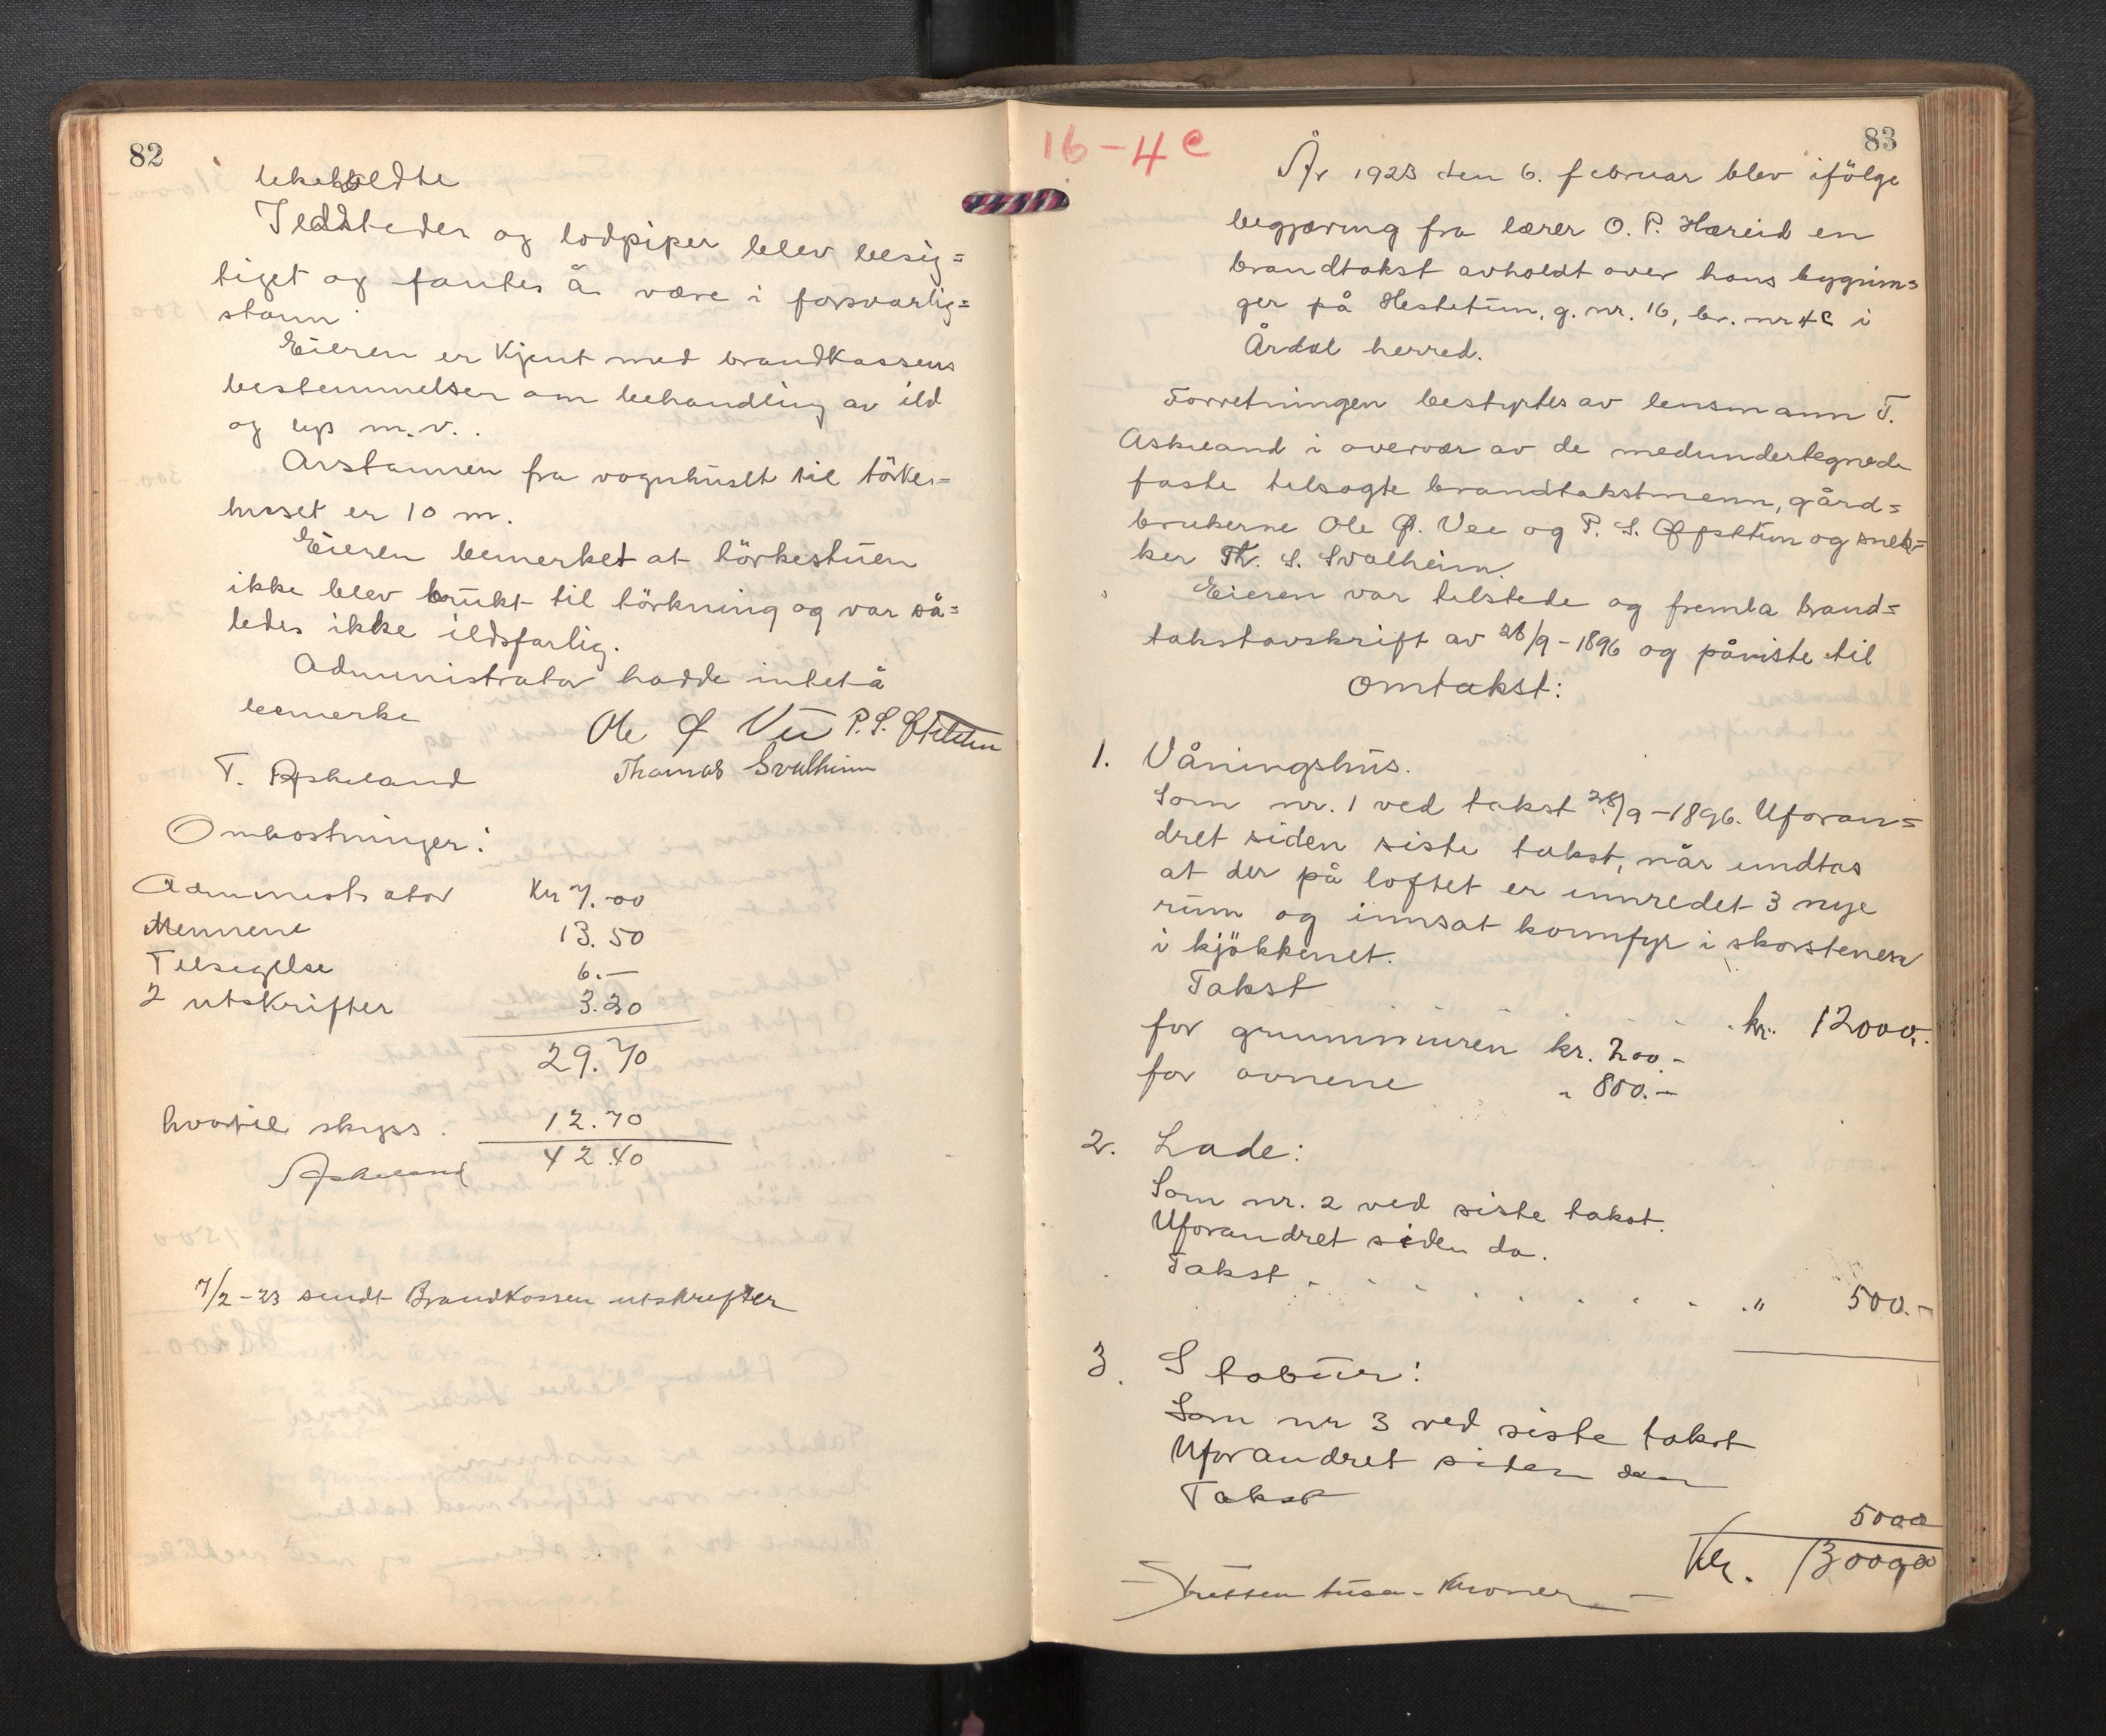 82
Ildsteder og lodpiper blev besig=
tiget og fantes å være i forsvarlig=
stann
Eieren er kjent med brandkassens
bestemmelser om behandling av ild
og lys m.v..
Avstannen fra vognhuset til törke=
huset er 10 m.
Eieren bemerket at törkestuen
ikke blev brukt til törkning og var så=
ledes ikke ildsfarlig.
Administrator hadde intet å
bemerke
Ole Ø Vee P. S.
T. Askeland Thomas Svalheim
Omkostninger:
Administrator Kr 7.00
Mennene 13.50
Tilsigelse 6.—
2 utskrifter 3.20
29.70
hvortil skyss. 12.70
42.40
Askeland
7/2-23 sendt Brandkassen utskrifter
16-4c
83
År 1923 den 6. februar blev ifölge
begjæring fra lærer O. P. Hæreid en
brandtakst avholdt over hans bygnin=
ger på Hestetun, g. nr. 16, br. nr 4c i
Årdal herred.
Forretningen bestyrtes av lensmann T.
Askeland i overvær av de medundertegnede
faste tilsagte brandtakstmenn, gård=
brukerne Ole Ø. Vee og P. S. Øfstetun og snek=
ker Th. S. Svalheim.
Eieren var tilstede og fremla brand=
takstavskrift av 28/9-1896 og påviste til
omtakst:
1. Våningshus.
Som nr. 1 ved takst 28/9-1896. Uforan=
dret siden siste takst, når undtas
at der på loftet er innredet 3 nye
rum og innsat komfyr i skorstenen
i kjökkenet.
Takst . . . . . kr. 12000.-
for grunnmuren kr. 200.-
for ovnene " 800.-
2. Lade:
Som nr. 2 ved siste takst.
Uforandret siden da.
Takst . . . . . . . . " 500.-
3. Stabur:
Som nr 3 ved siste takst
Uforandret siden den
Takst
5000
Kr. 1300000
— Tretten tusen Kroner —